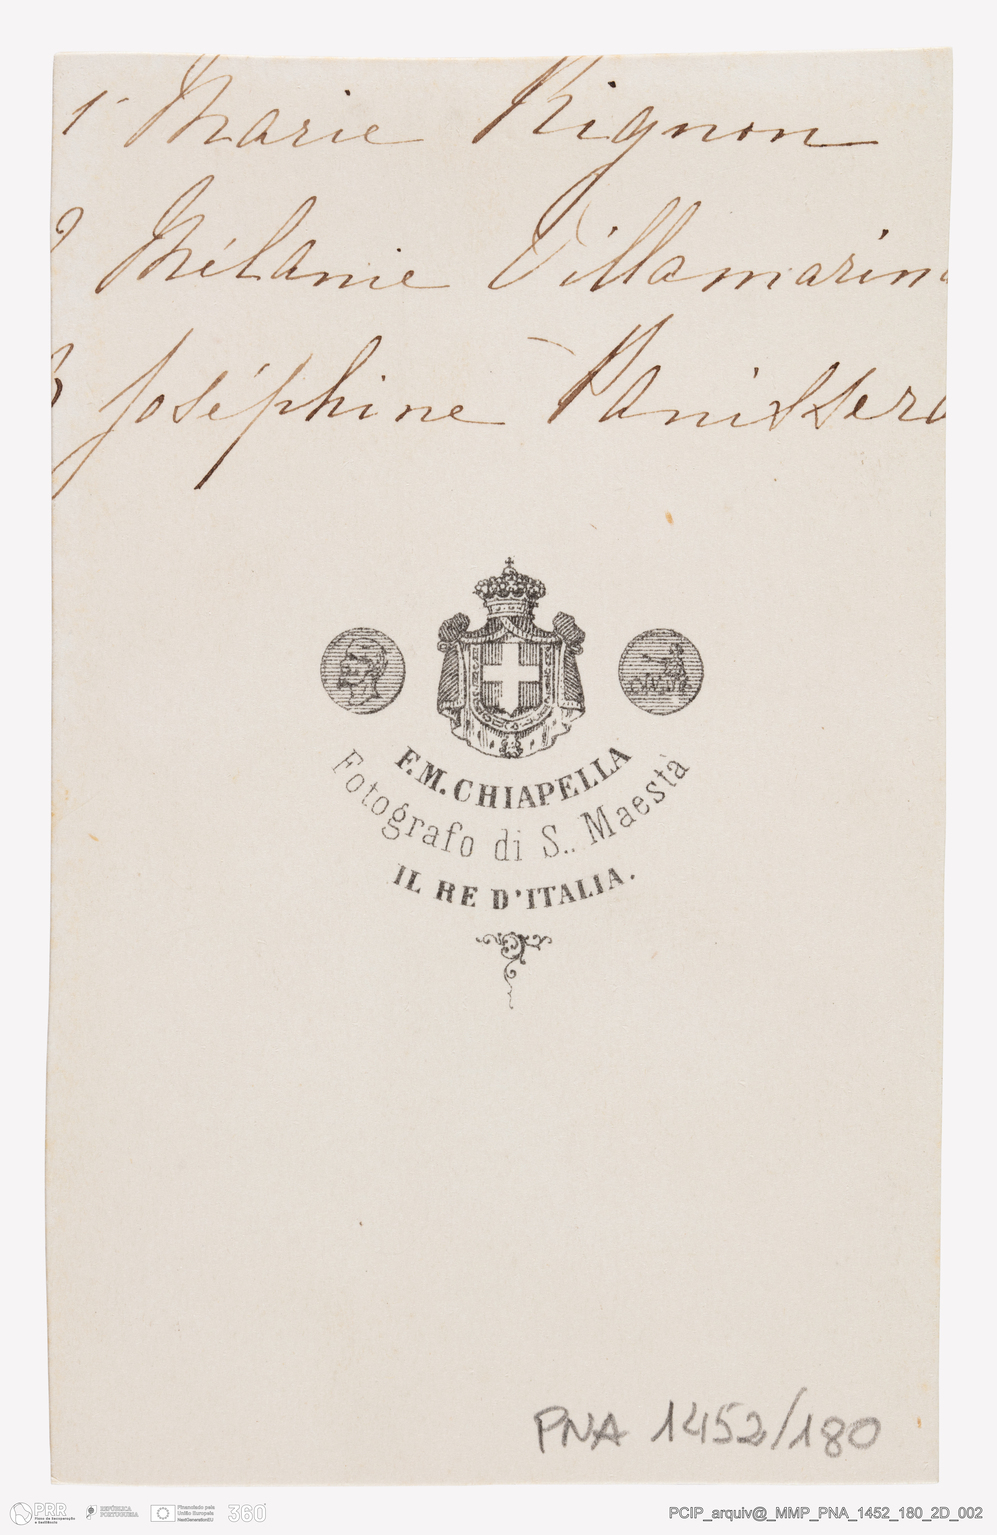 1- Marie Rignon
2 Mélanie Villamarina
3 Joséphine Panissera
F. M. CHIAPELLA
Fotografo di S.. Maestà
IL RE D'ITALIA.
PNA 1452/180
PRR
Plano de Recuperação e Resiliência
REPÚBLICA PORTUGUESA
Financiado pela
União Europeia
NextGenerationEU
360
PCIP_arquiv@_MMP_PNA_1452_180_2D_002